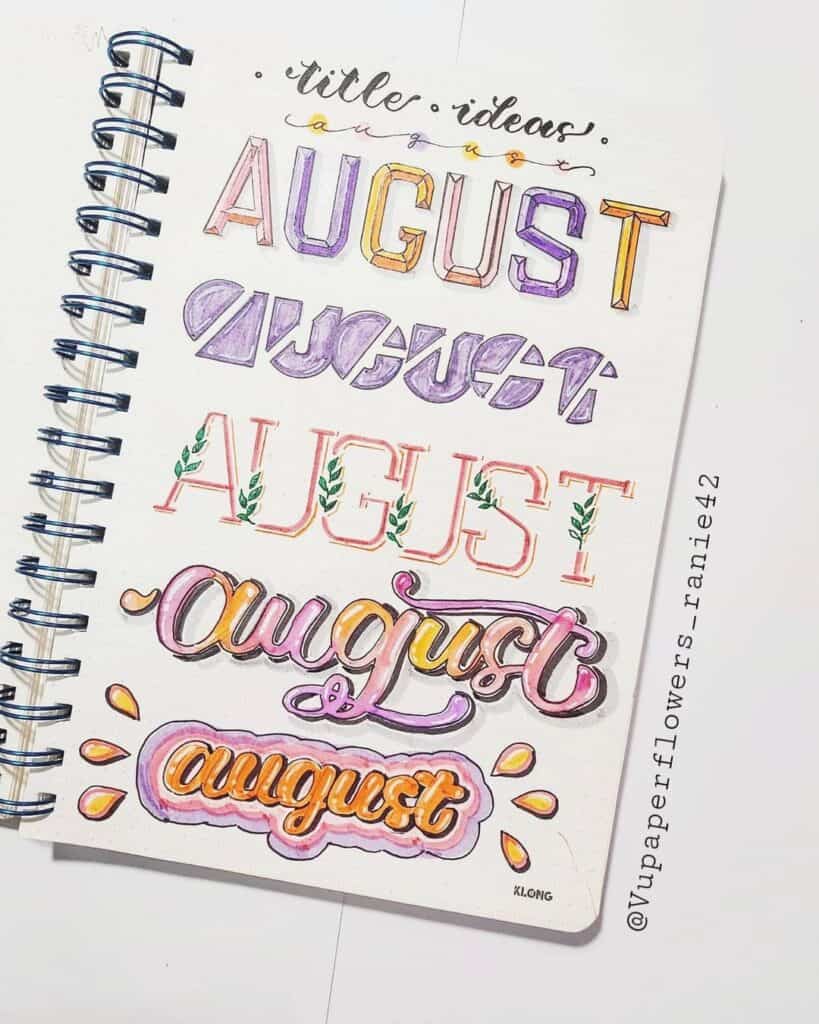 title ideas
august
AUGUST
AUGUST
AUGUST
august
august
KLONG
@Vupaperflowers_ranie42